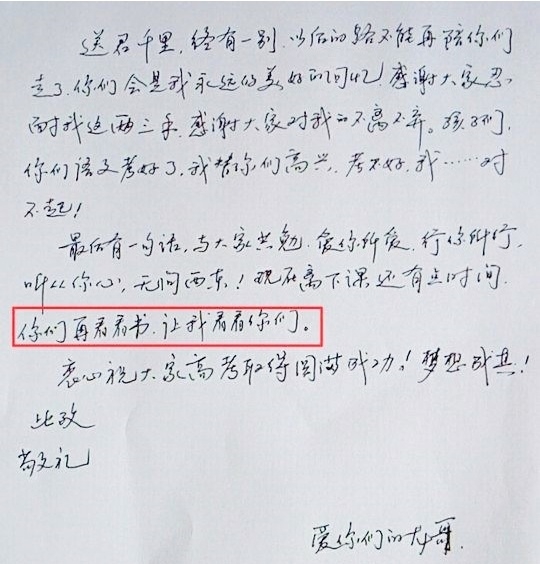 送君千里,终有一别.以后的路不能再陪你们
走了.你们会是我永远的美好的回忆.感谢大家忍
耐我这两三年.感谢大家对我的不离不弃。孩子们,
你们语文考好了,我替你们高兴,考不好,我……对
不起!
最后有一句话,与大家共勉.爱你所爱,行你所行,
听从你心,无问西东!现在离下课还有点时间.
你们再看看书.让我看看你们。
衷心祝大家高考取得圆满成功!梦想成真!
此致
敬礼
爱你们的龙哥.